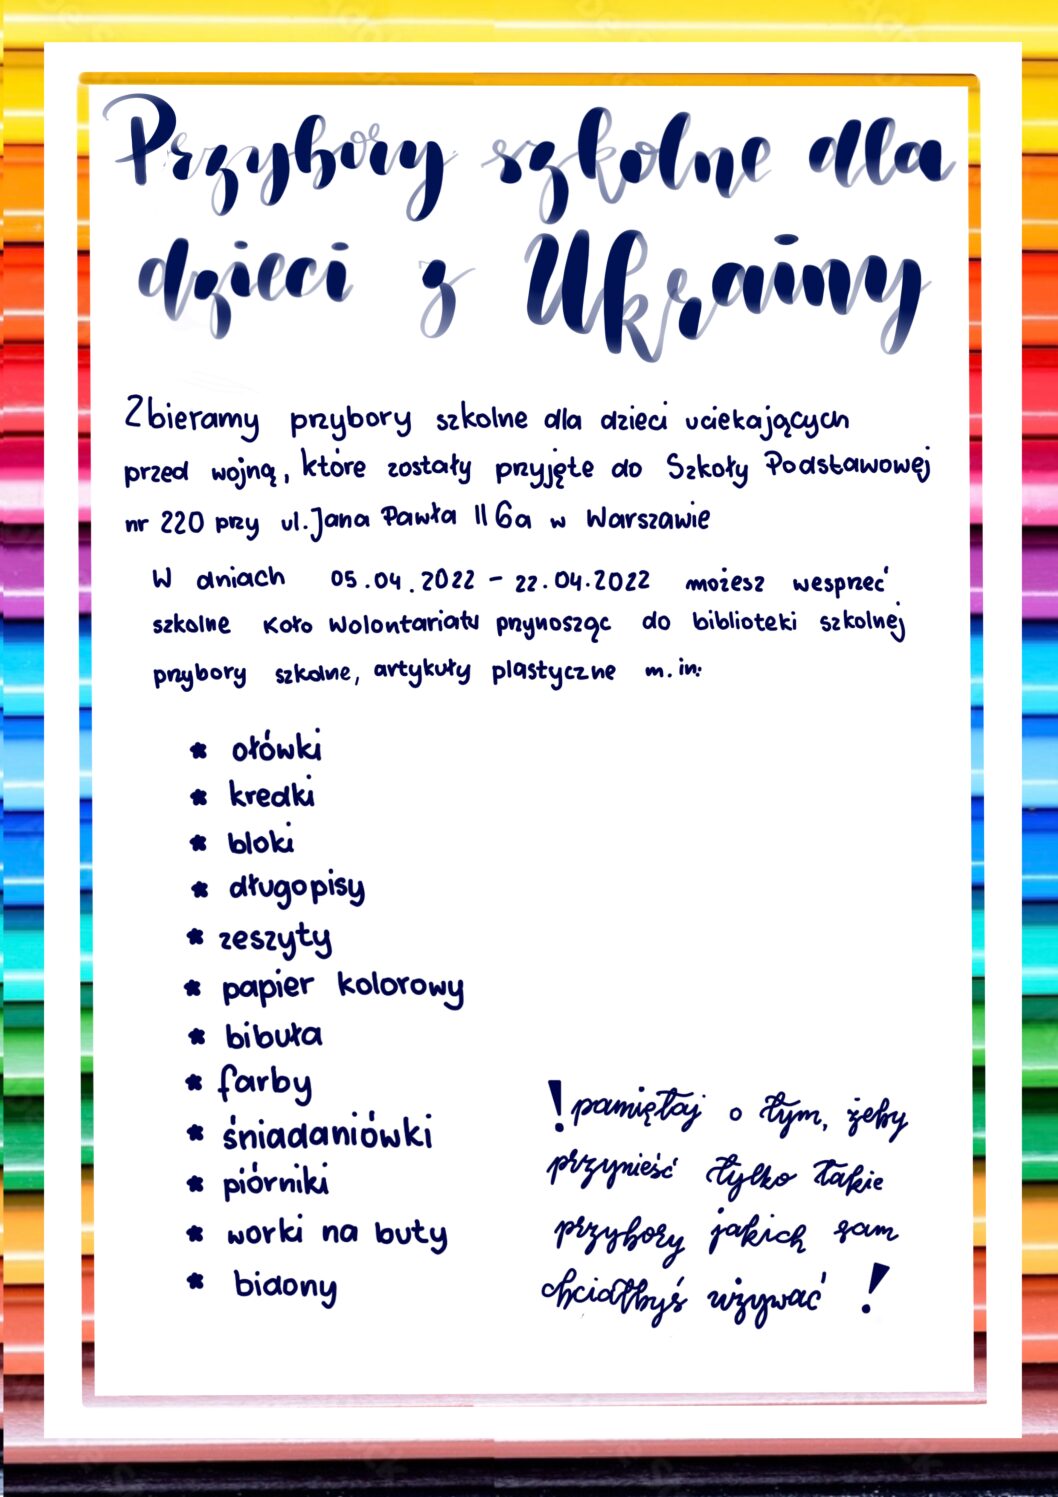 Przybory szkolne dla
dzieci z Ukrainy
Zbieramy przybory szkolne dla dzieci uciekających
przed wojną, które zostały przyjęte do Szkoły Podstawowej
nr 220 przy ul. Jana Pawła II 6a w Warszawie
W dniach 05.04.2022 - 22.04.2022 możesz wesprzeć
szkolne Koło Wolontariatu przynosząc do biblioteki szkolnej
przybory szkolne, artykuły plastyczne m.in:
* ołówki
* kredki
* bloki
* długopisy
* zeszyty
* papier kolorowy
* bibuła
* farby
* śniadaniówki
* piórniki
* worki na buty
* bidony
! pamiętaj o tym, żeby
przynieść tylko takie
przybory jakich sam
chciałbyś używać !